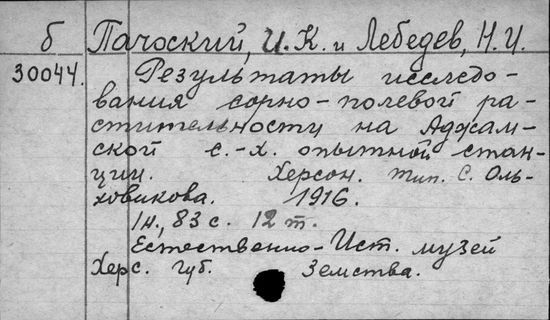 б Пачоский, И. К. и Лебедев, Н. И.
30044. Результаты исследо-
вания сорно-полевой ра-
стительности на Аджам-
ской с.-х. опытной стан-
ции. Херсон. тип. С. Оль-
ховикова. 1916.
1н., 83 с. 12 т.
Естественно-Ист. музей
Херс. губ. Земства.